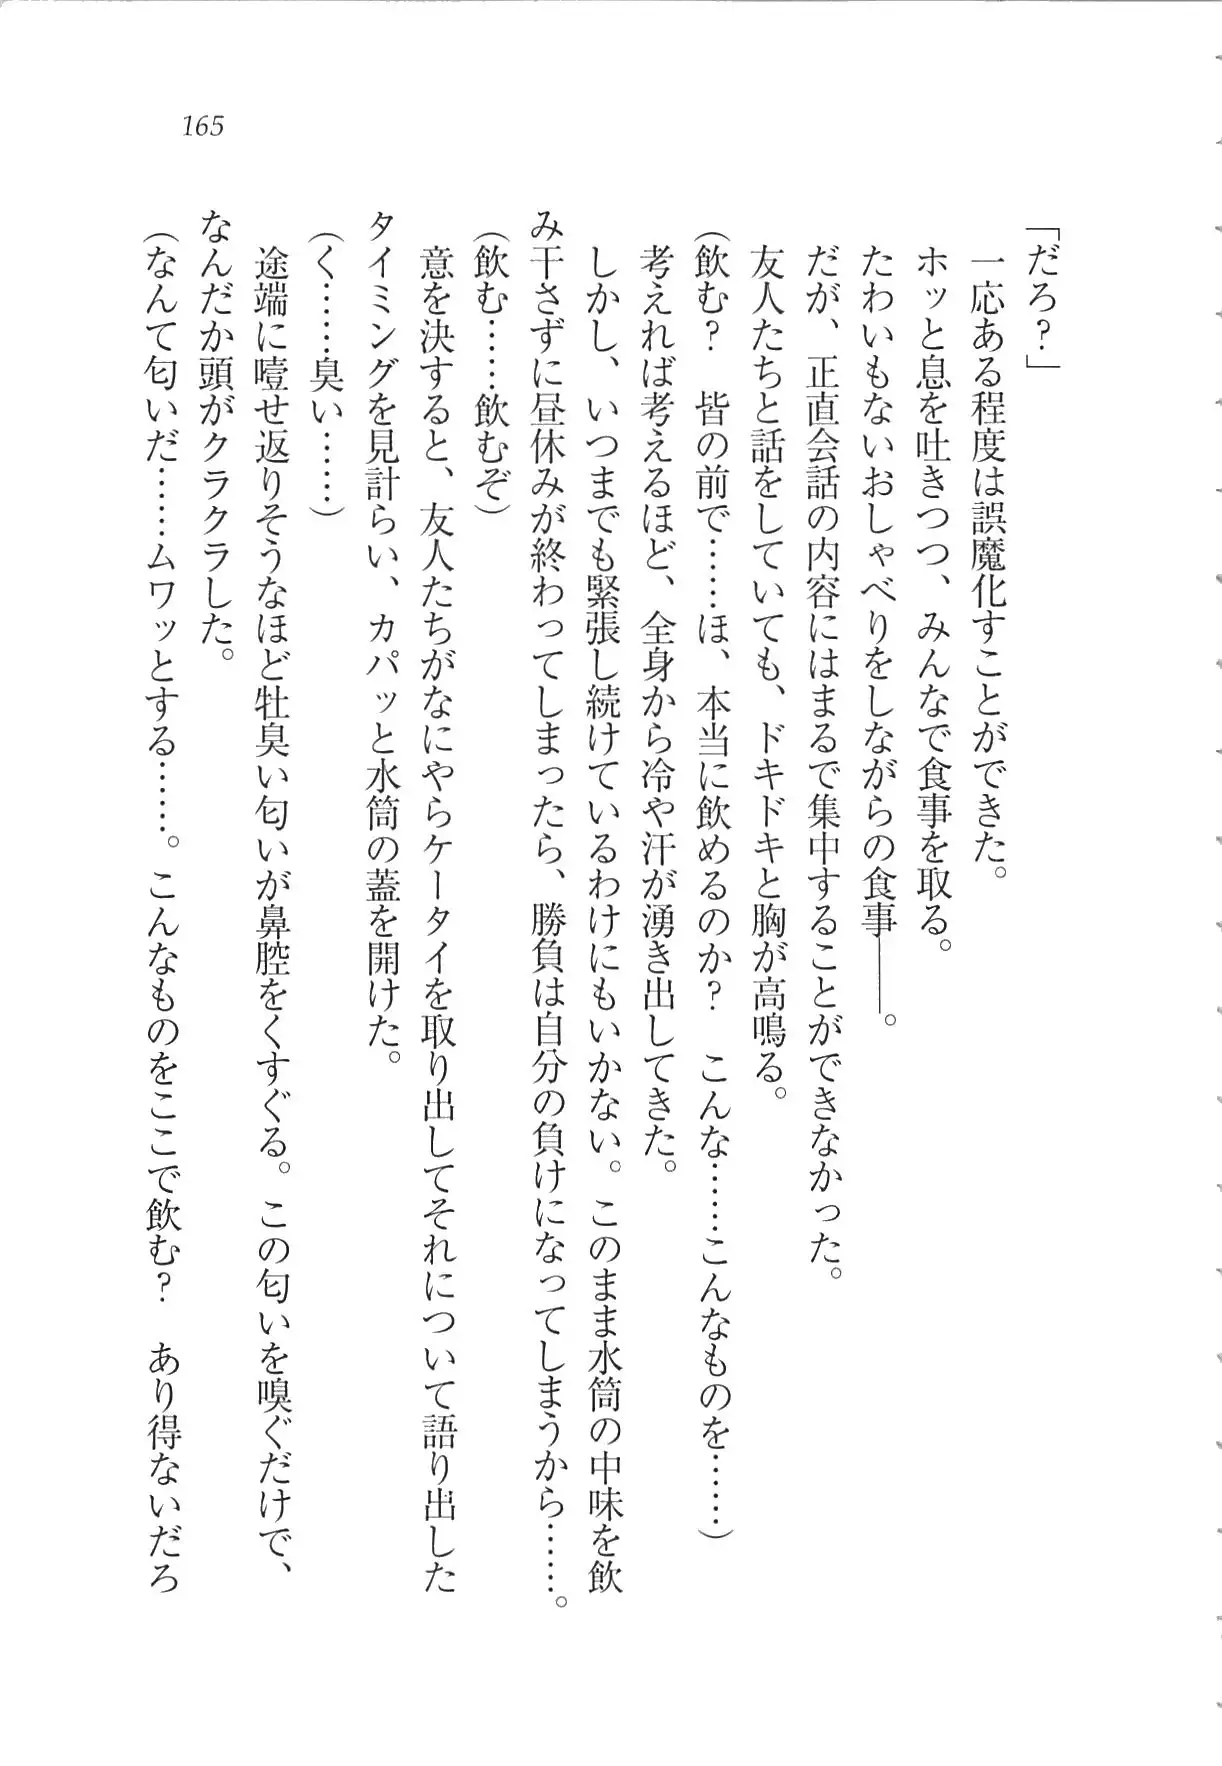 165
「だろ？」
　一応ある程度は誤魔化すことができた。
　ホッと息を吐きつつ、みんなで食事を取る。
　たわいもないおしゃべりをしながらの食事――。
　だが、正直会話の内容にはまるで集中することができなかった。
　友人たちと話をしていても、ドキドキと胸が高鳴る。
（飲む？　皆の前で……ほ、本当に飲めるのか？　こんな……こんなものを……）
　考えれば考えるほど、全身から冷や汗が湧き出してきた。
　しかし、いつまでも緊張し続けているわけにもいかない。このまま水筒の中味を飲
み干さずに昼休みが終わってしまったら、勝負は自分の負けになってしまうから……。
（飲む……飲むぞ）
　意を決すると、友人たちがなにやらケータイを取り出してそれについて語り出した
タイミングを見計らい、カパッと水筒の蓋を開けた。
（く……臭い……）
　途端に噎せ返りそうなほど牡臭い匂いが鼻腔をくすぐる。この匂いを嗅ぐだけで、
なんだか頭がクラクラした。
（なんて匂いだ……ムワッとする……。こんなものをここで飲む？　あり得ないだろ